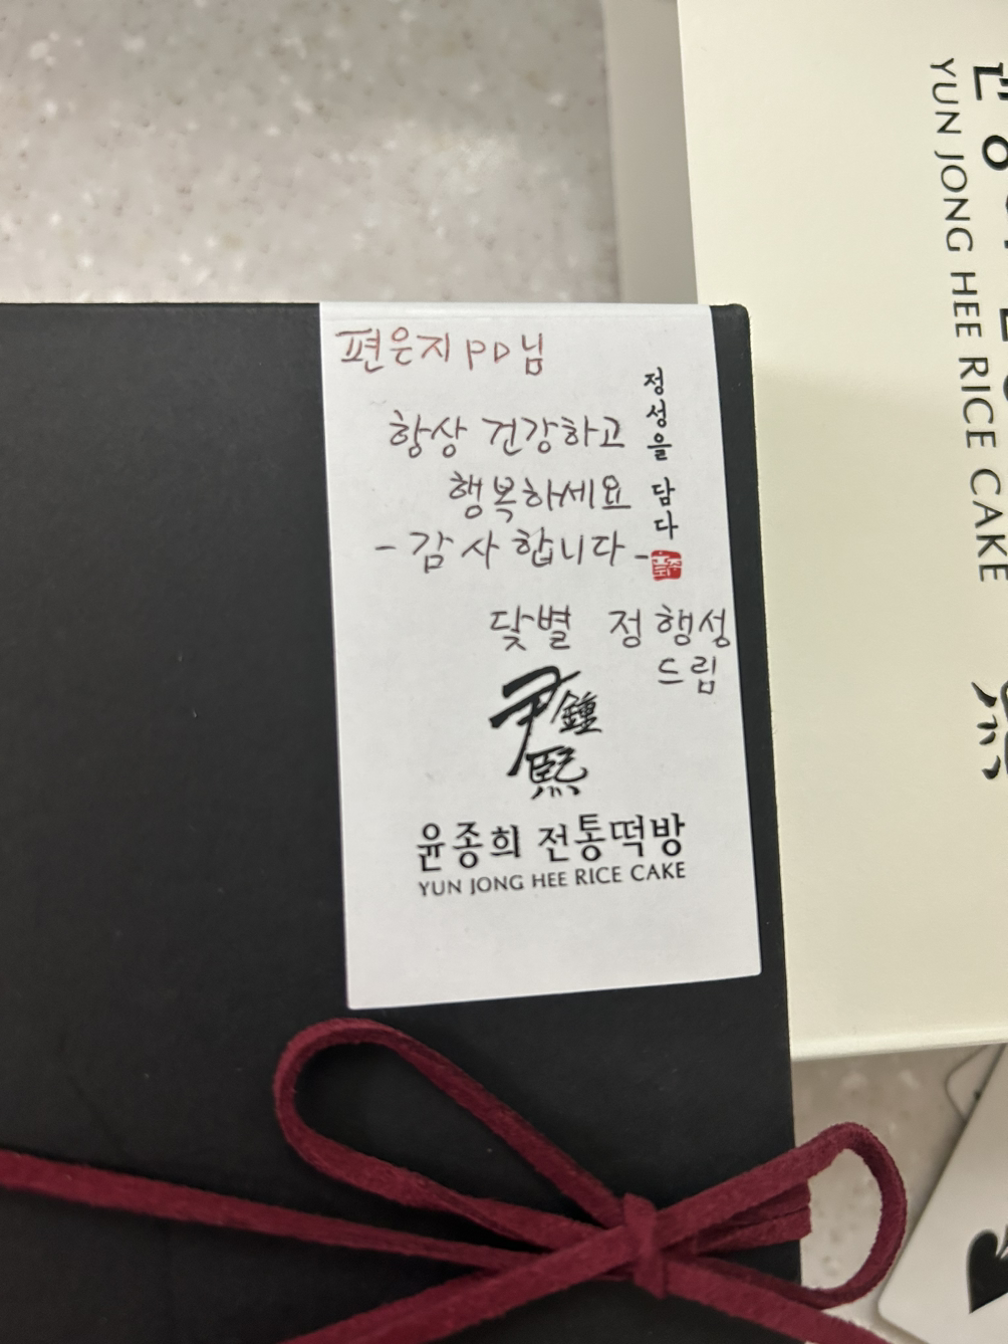 편은지 PD님
항상 건강하고
행복하세요
- 감사합니다 -
닻별 정행성
드림
정성을 담다
尹鍾熙
윤종희 전통떡방
YUN JONG HEE RICE CAKE
YUN JONG HEE RICE CAKE